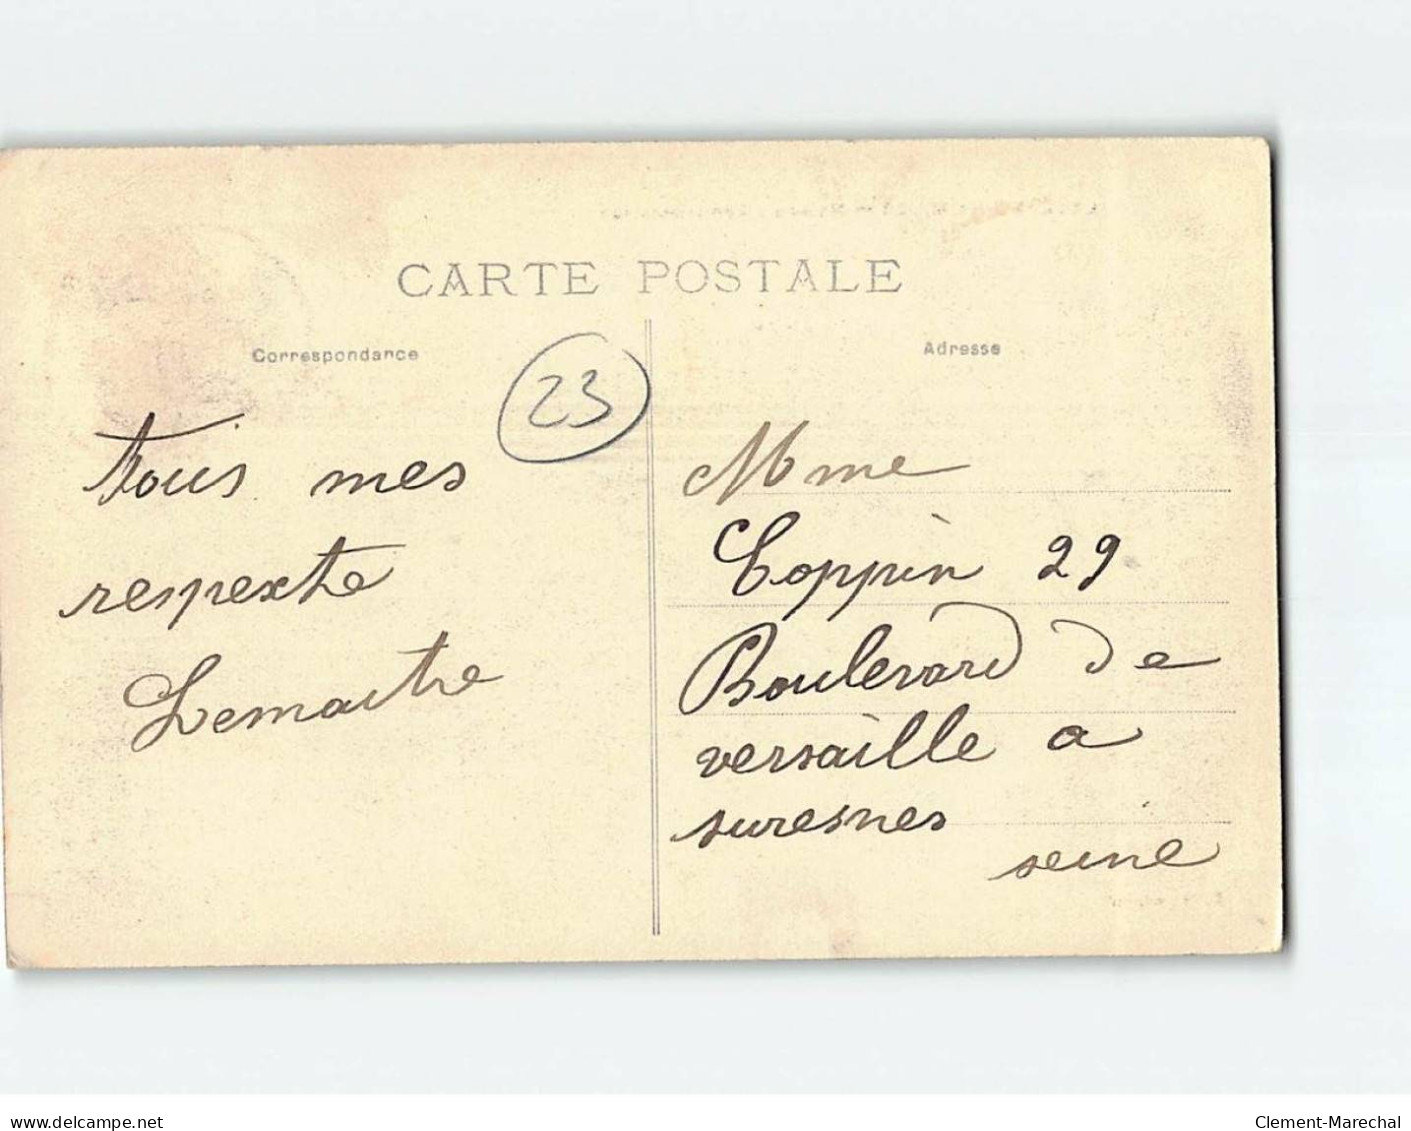 CARTE POSTALE
Correspondance
Adresse
23
tous mes
respexte
Lemaitre
Mme
Coppin 29
Boulevard de
versaille a
suresnes
seine
www.delcampe.net
Clement-Marechal